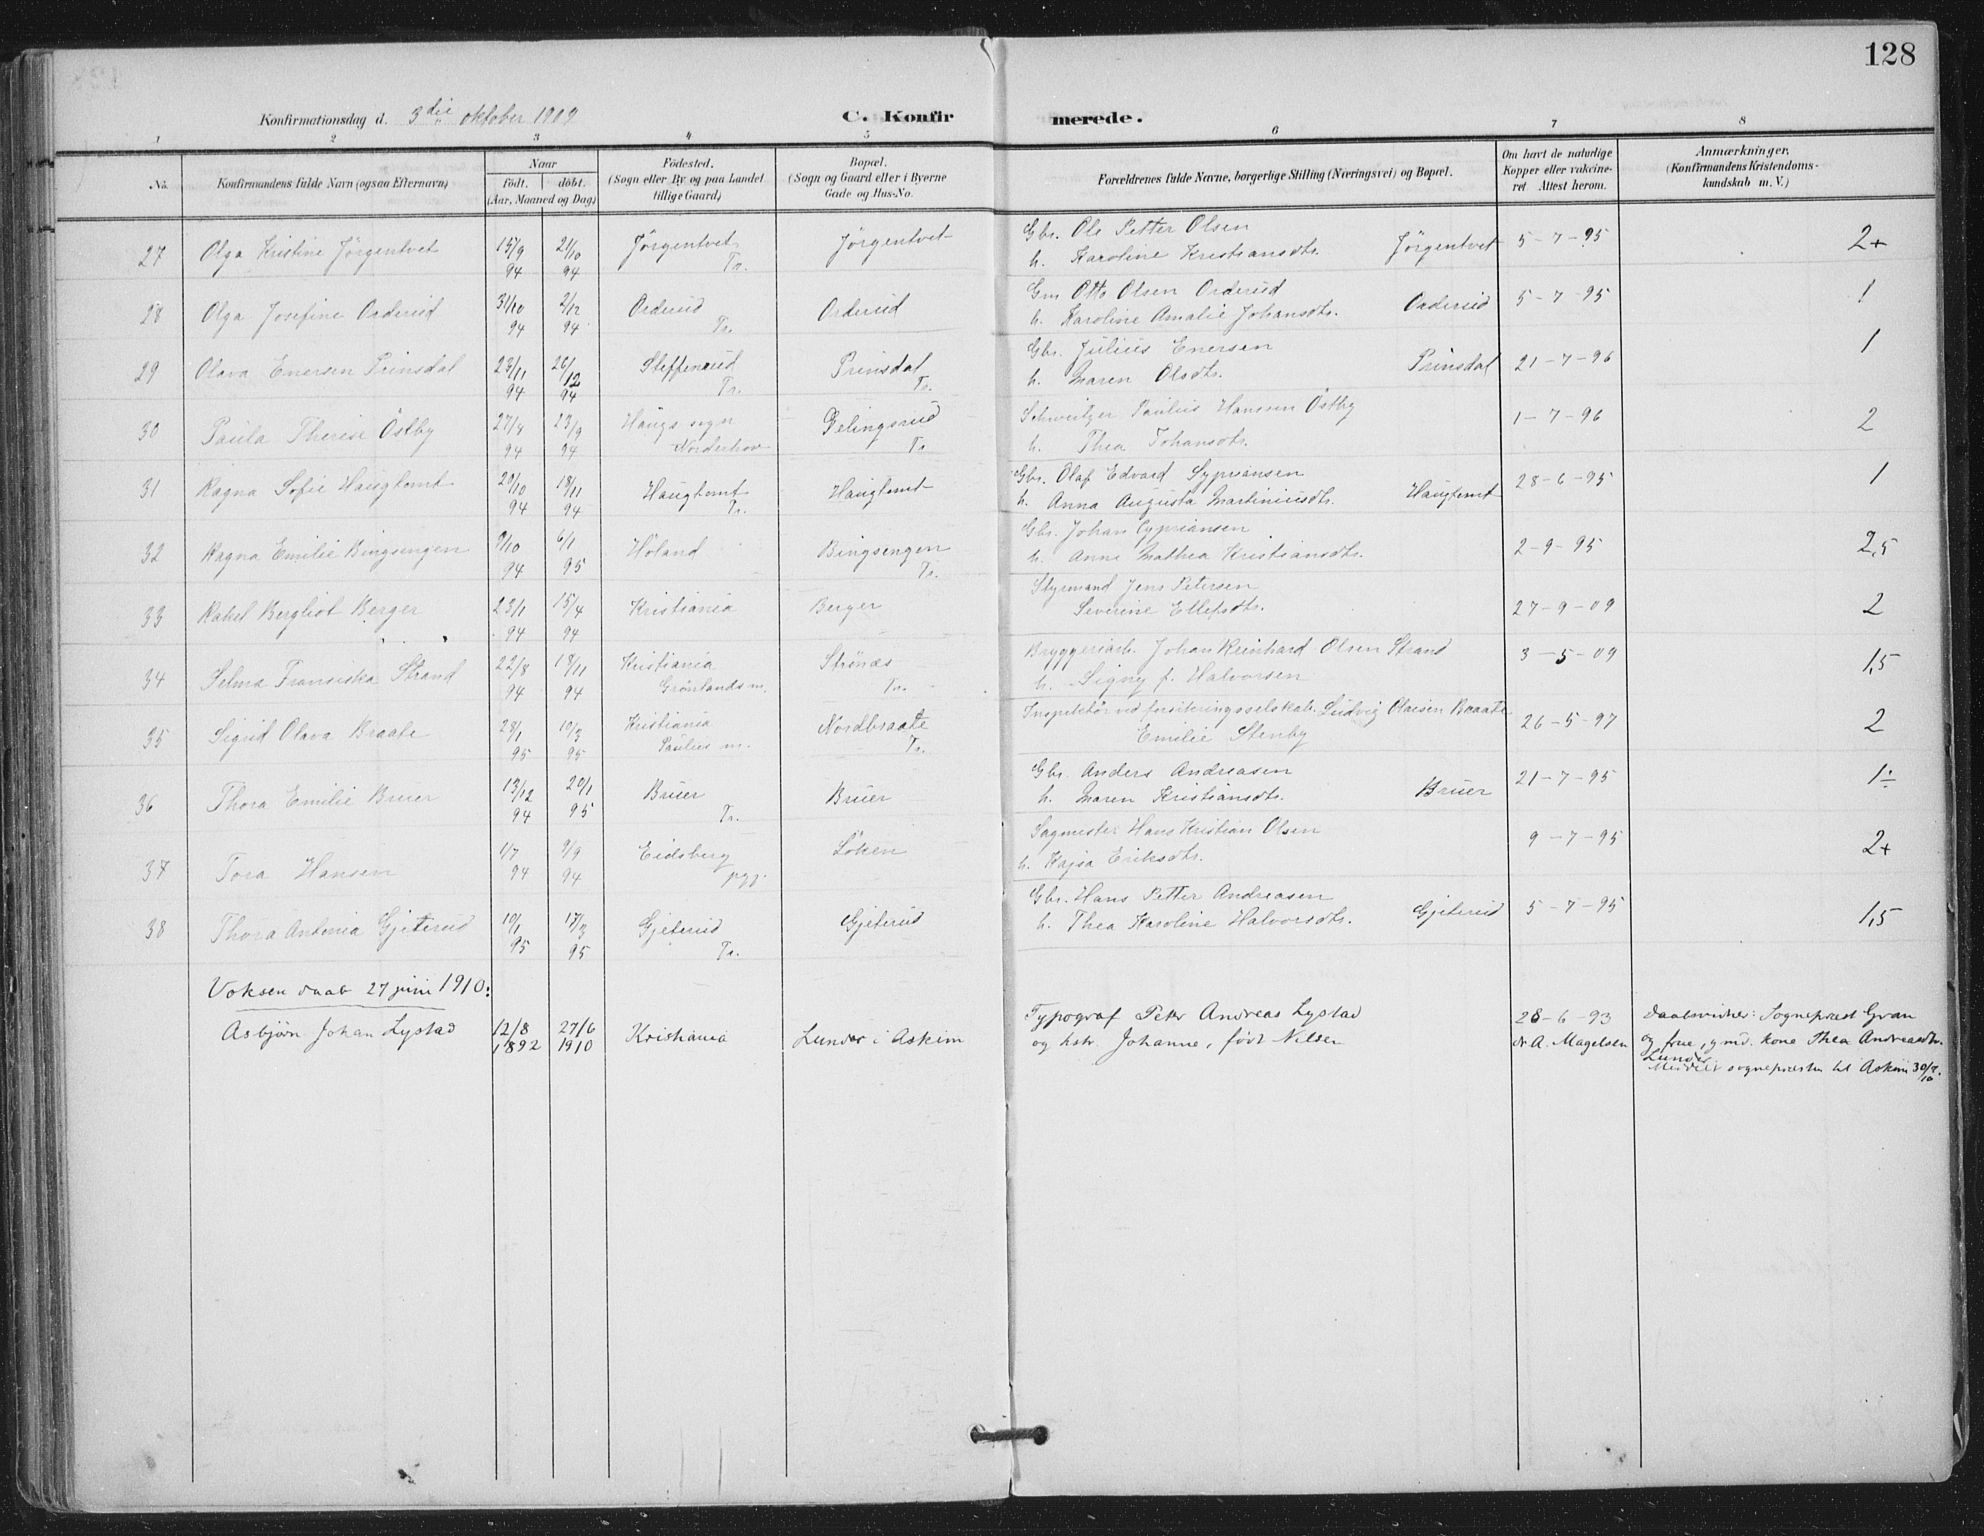 128
Konfirmationsdag d. 3die oktober 1909 C. Konfirmerede.
1 2 3 4 5 6 7 8
No. Konfirmandens fulde Navn (ogsaa Efternavn)
Naar
födt. döbt.
(Aar, Maaned og Dag)
Födested.
(Sogn eller By og paa Landet
tillige Gaard)
Bopæl.
(Sogn og Gaard eller i Byerne
Gade og Hus-No.
Forældrenes fulde Navne, borgerlige Stilling (Næringsvei) og Bopæl.
Om havt de naturlige
Kopper eller vakcine-
ret Attest herom.
Anmærkninger.
(Konfirmandens Kristendoms-
kundskab m. V.)
27 Olga Kristine Jørgentvet 15/9 94 21/10 94 Jørgentvet Tr. Jørgentvet Gbr. Ole Petter Olsen
h. Karoline Kristiansdtr. Jørgentvet 5-7-95 2+
28 Olga Josefine Orderud 31/10 94 2/12 94 Orderud Tr. Orderud Gm Otto Olsen Orderud
h. Karoline Amalie Johansdtr. Orderud 5-7-95 1
29 Olava Enersen Prinsdal 23/11 94 26/12 94 Steffensrud Tr. Prinsdal Tr. Gbr. Julius Enersen
h. Maren Olsdtr. Prinsdal 21-7-96 1
30 Paula Therese Östby 27/8 94 23/9 94 Haugs sogn Norderhov Tr. Schweitzer Paulus Hansen Östby
h. Thea Johansdtr. 1-7-96 2
31 Ragna Sofie Haugtomt 20/10 94 18/11 94 Haugtomt Tr. Haugtomt Gbr. Olaf Edvard Sypriansen
h. Anna Augusta Martiniusdtr. Haugtomt 28-6-95 1
32 Ragna Emilie Bingsengen 9/10 94 6/1 95 Höland Bingsengen Tr. Gbr. Johan Cypriansen
h. Anne Mathea Kristiansdtr. 2-9-95 2,5
33 Rakel Bergliot Berger 23/1 94 15/4 94 Kristiania Berger Styrmand Jens Petersen
Severine Ellefsdtr. 27-9-09 2
34 Selma Fransiska Strand 22/8 94 18/11 94 Kristiania Grönlands m. Strönæs Tr. Bryggeriarb. Johan Reinhard Olsen Strand
h. Signy f. Halvorsen 3-5-09 1,5
35 Sigrid Olava Braate 28/1 95 10/3 95 Kristiania Paulus m. Nordbraate Tr. Inspektör ved Ludvig Olaisen Braate
Emilie Stenby 26-5-97 2
36 Thora Emilie Bruer 13/12 94 20/1 95 Bruer Tr. Bruer Gbr. Anders Andreasen
h. Maren Kristiansdtr. Bruer 21-7-95 1÷
37 Tora Hansen 1/7 94 9/9 94 Eidsberg pgj. Löken Sagmester Hans Kristian Olsen
h. Kajsa Eriksdtr. 9-7-95 2+
38 Thora Antonia Gjeterud 10/1 95 17/3 95 Gjeterud Tr. Gjeterud Gbr. Hans Petter Andreasen
h. Thea Karoline Halvorsdtr. Gjeterud 5-7-95 1,5
Voksen daab 27 juni 1910:
Asbjørn Johan Lystad 12/8 1892 27/6 1910 Kristiania Lunder i Askim Typograf Peter Andreas Lystad
og hstr. Johanne, født Nilsen 28-6-93
dr A. Magelsen Daabsvidner: Sogneprest Gran
og frue, gmd. kone Thea Andreasdtr.
Lunder
Meddelt sognepresten til Askim 30/7 10